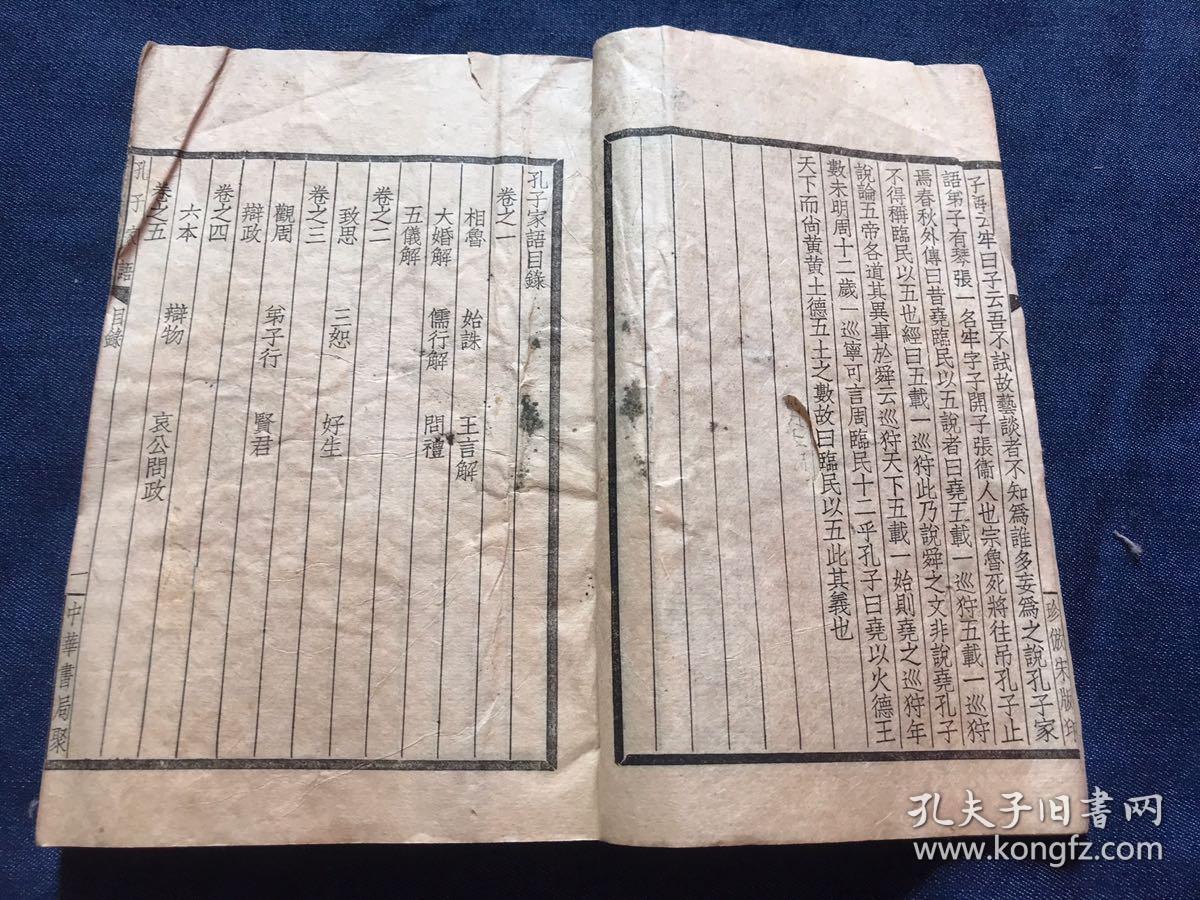 子爯云牢曰子云吾不試故藝談者不知爲誰多妄爲之說孔子家
語弟子有琴張一名牢字子開子張衞人也宗魯死將往吊孔子止
焉春秋外傳曰昔堯臨民以五說者曰堯五載一巡狩五載一巡狩
不得稱臨民以五也經曰五載一巡狩此乃說舜之文非說堯孔子
說論五帝各道其異事於舜云巡狩天下五載一始則堯之巡狩年
數未明周十二歲一巡寧可言周臨民十二乎孔子曰堯以火德王
天下而尙黃黃土德五土之數故曰臨民以五此其義也
珍倣宋版印
孔子家語目錄
卷之一
相魯 始誅 王言解
大婚解 儒行解 問禮
五儀解
卷之二
致思 三恕 好生
卷之三
觀周 弟子行 賢君
辯政
卷之四
六本 辯物 哀公問政
卷之五
孔子家語 目錄
一 中華書局聚
孔夫子旧书网
www.kongfz.com